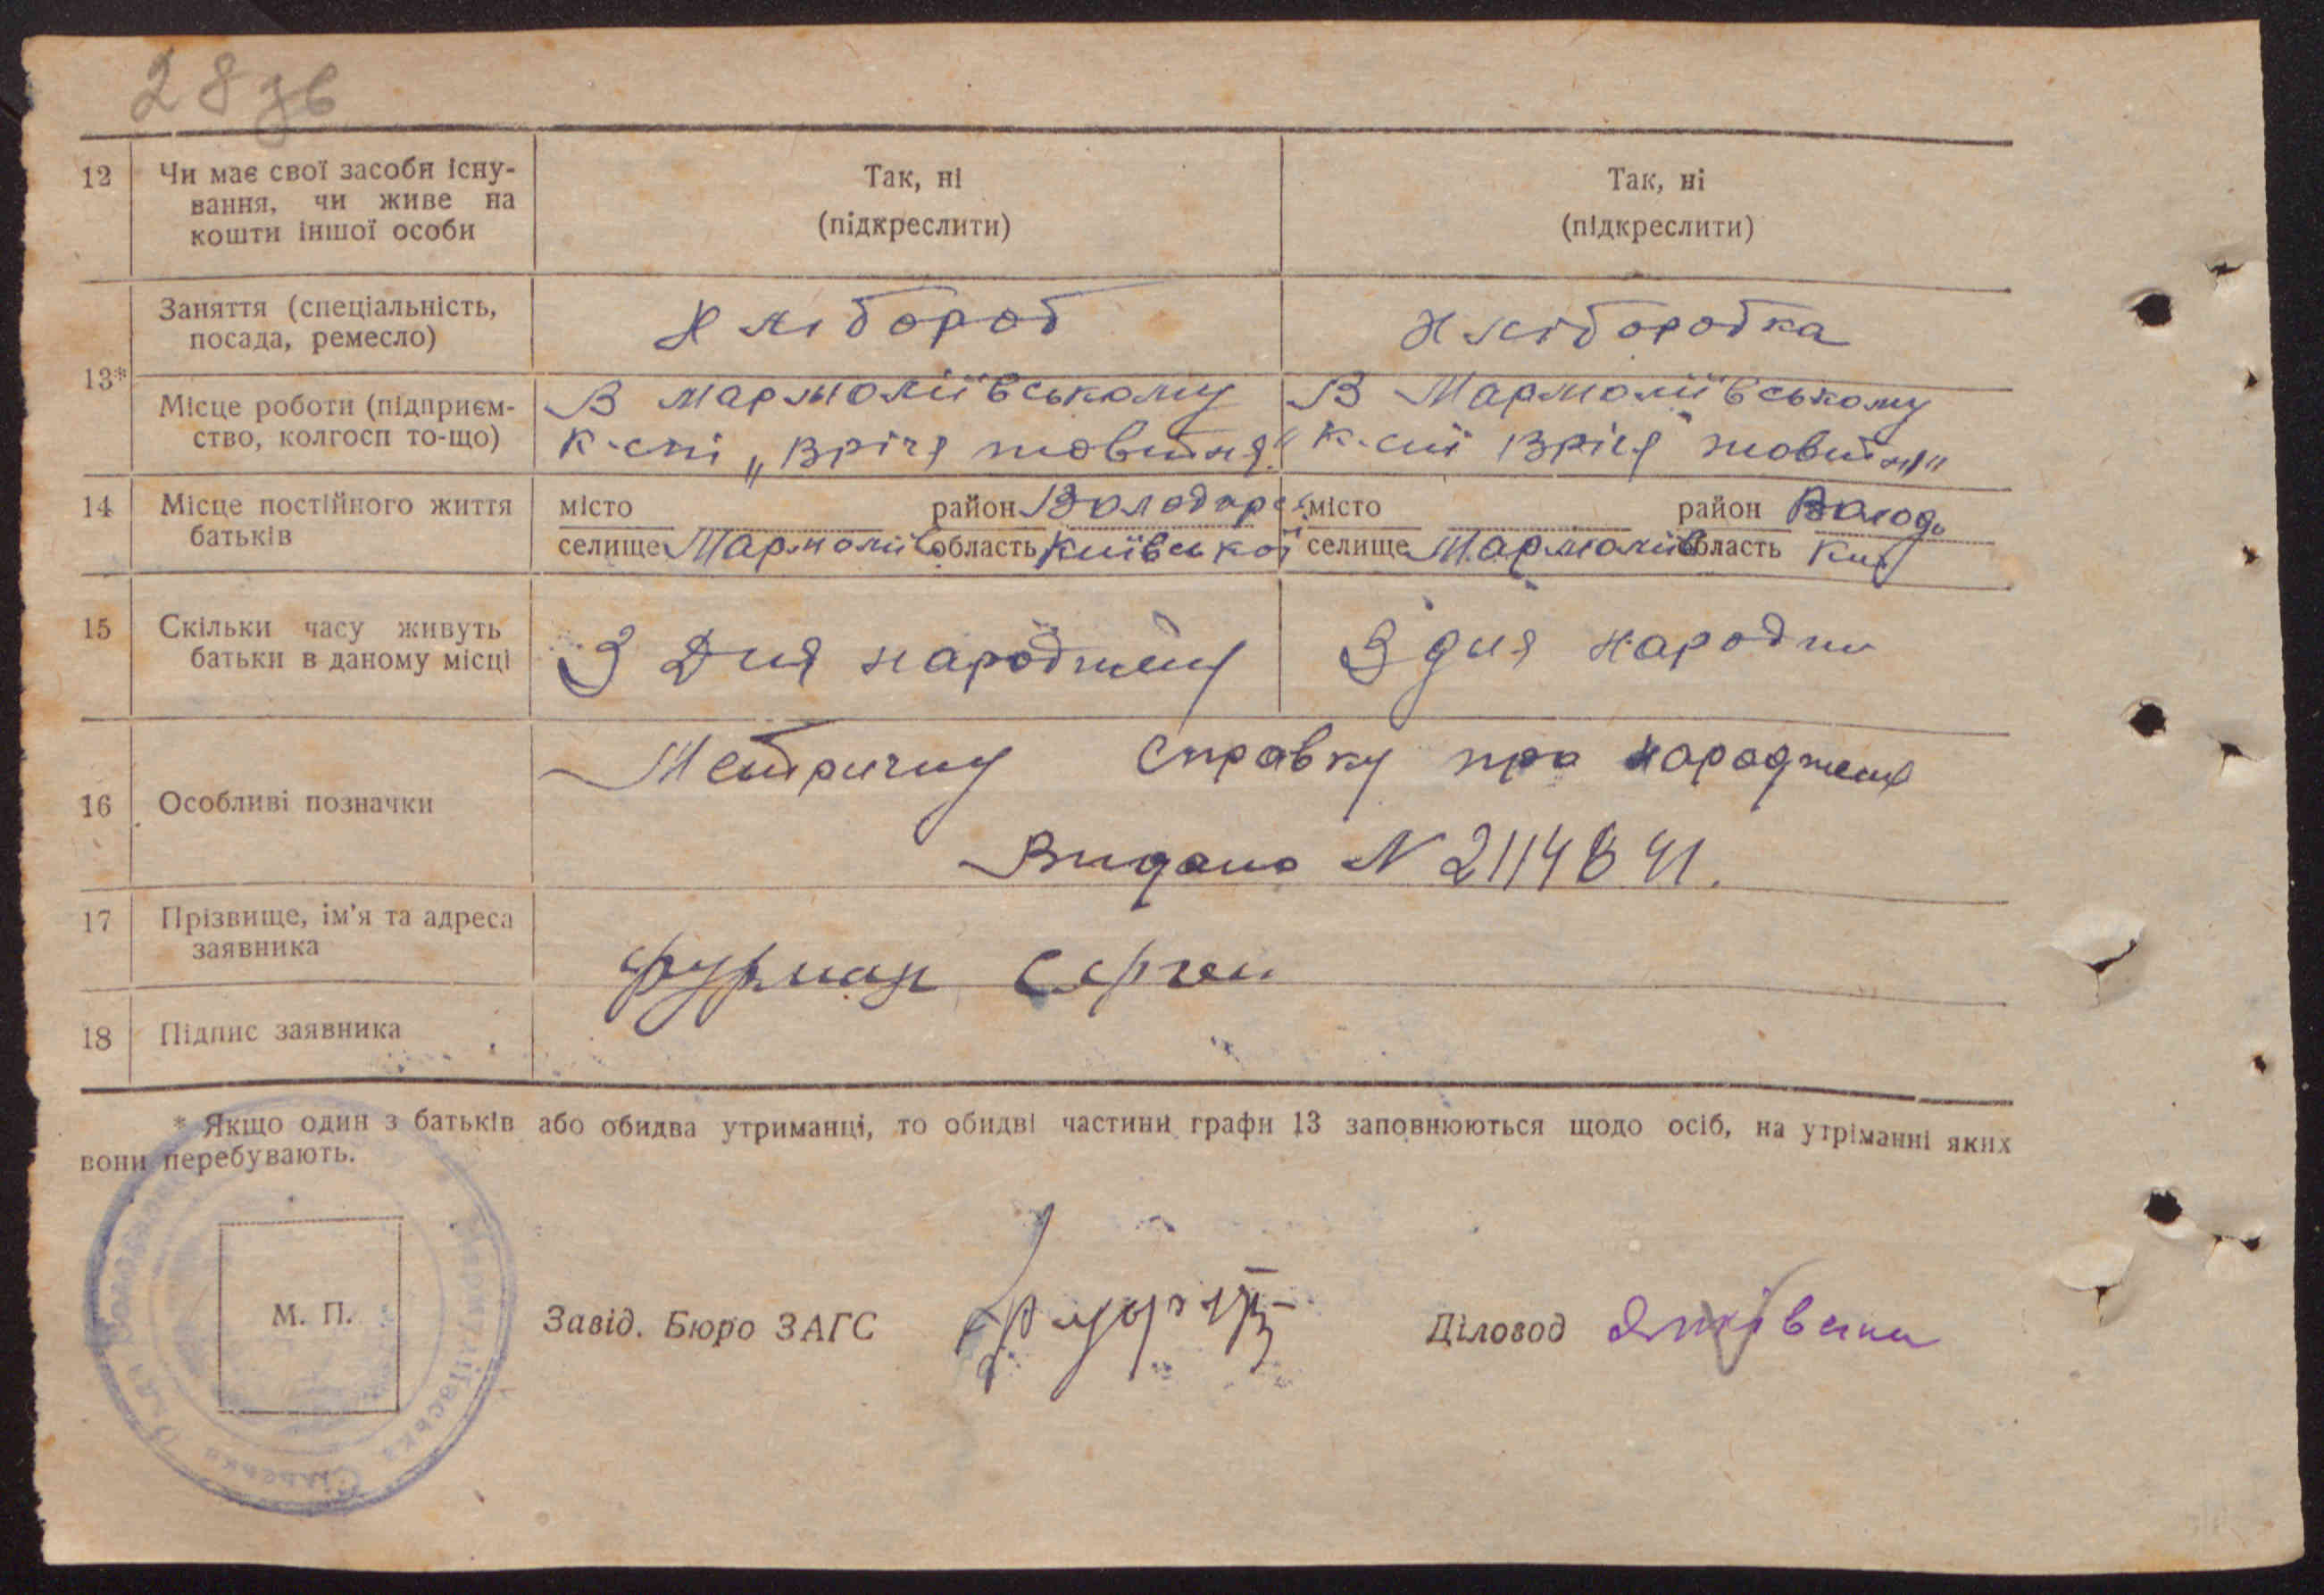 28 зв
12 Чи має свої засоби існу- Так, ні Так, ні
вання, чи живе на (підкреслити) (підкреслити)
кошти іншої особи
13* Заняття (спеціальність, Хлібороб Хліборобка
посада, ремесло)
Місце роботи (підприєм- В Мармоліївському В Мармоліївському
ство, колгосп то-що) к-спі „ Врічя жовтня." к-спі Врічя жовтня"
14 Місце постійного життя місто район Володарс місто район Володь
батьків селище Мармолії область Київської селище Мармолії область Киї
15 Скільки часу живуть З Дня народжен З дня народж
батьки в даному місці
16 Особливі позначки Метричну справку про народжен
Видано N 2114841.
17 Прізвище, ім'я та адреса
заявника Фурман Сергій
18 Підпис заявника
* Якщо один з батьків або обидва утриманці, то обидві частини графи 13 заповнюються щодо осіб, на утріманні яких
вони перебувають.
М. П. Завід. Бюро ЗАГС Діловод
Сільська